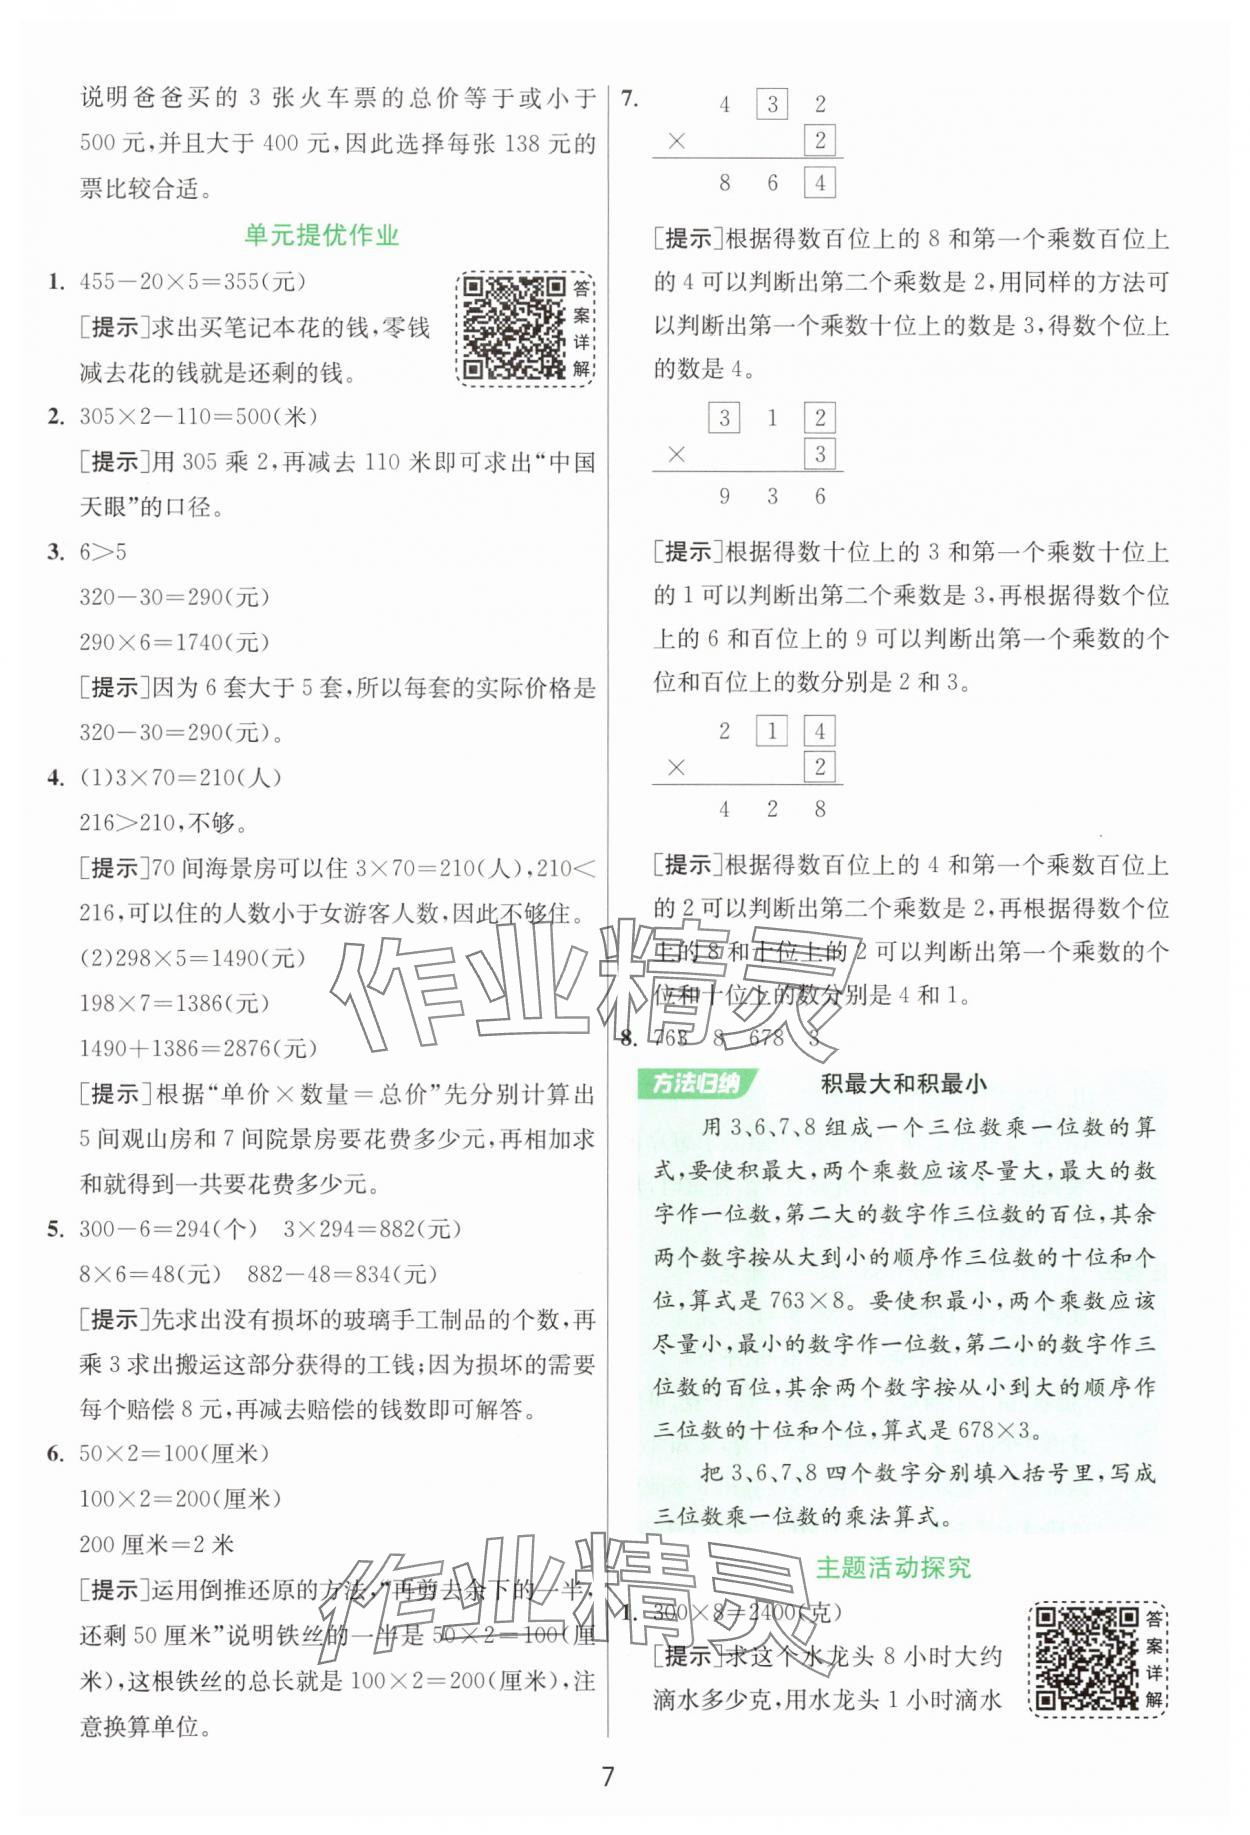 说明爸爸买的 3 张火车票的总价等于或小于
500 元,并且大于 400 元,因此选择每张 138 元的
票比较合适。
单元提优作业
1. 455-20×5=355(元)
[提示]求出买笔记本花的钱,零钱
减去花的钱就是还剩的钱。
答案详解
2. 305×2-110=500(米)
[提示]用 305 乘 2,再减去 110 米即可求出“中国
天眼”的口径。
3. 6>5
320-30=290(元)
290×6=1740(元)
[提示]因为 6 套大于 5 套,所以每套的实际价格是
320-30=290(元)。
4. (1)3×70=210(人)
216>210,不够。
[提示]70 间海景房可以住 3×70=210(人),210<
216,可以住的人数小于女游客人数,因此不够住。
(2)298×5=1490(元)
198×7=1386(元)
1490+1386=2876(元)
[提示]根据“单价×数量=总价”先分别计算出
5 间观山房和 7 间院景房要花费多少元,再相加求
和就得到一共要花费多少元。
5. 300-6=294(个) 3×294=882(元)
8×6=48(元) 882-48=834(元)
[提示]先求出没有损坏的玻璃手工制品的个数,再
乘 3 求出搬运这部分获得的工钱;因为损坏的需要
每个赔偿 8 元,再减去赔偿的钱数即可解答。
6. 50×2=100(厘米)
100×2=200(厘米)
200 厘米=2 米
[提示]运用倒推还原的方法,“再剪去余下的一半,
还剩 50 厘米”说明铁丝的一半是 50×2=100(厘
米),这根铁丝的总长就是 100×2=200(厘米),注
意换算单位。
7. 4 3 2
× 2
8 6 4
[提示]根据得数百位上的 8 和第一个乘数百位上
的 4 可以判断出第二个乘数是 2,用同样的方法可
以判断出第一个乘数十位上的数是 3,得数个位上
的数是 4。
3 1 2
× 3
9 3 6
[提示]根据得数十位上的 3 和第一个乘数十位上
的 1 可以判断出第二个乘数是 3,再根据得数个位
上的 6 和百位上的 9 可以判断出第一个乘数的个
位和百位上的数分别是 2 和 3。
2 1 4
× 2
4 2 8
[提示]根据得数百位上的 4 和第一个乘数百位上
的 2 可以判断出第二个乘数是 2,再根据得数个位
上的 8 和十位上的 2 可以判断出第一个乘数的个
位和十位上的数分别是 4 和 1。
8. 763 8 678 3
方法归纳 积最大和积最小
用 3、6、7、8 组成一个三位数乘一位数的算
式,要使积最大,两个乘数应该尽量大,最大的数
字作一位数,第二大的数字作三位数的百位,其余
两个数字按从大到小的顺序作三位数的十位和个
位,算式是 763×8。要使积最小,两个乘数应该
尽量小,最小的数字作一位数,第二小的数字作三
位数的百位,其余两个数字按从小到大的顺序作
三位数的十位和个位,算式是 678×3。
把 3、6、7、8 四个数字分别填入括号里,写成
三位数乘一位数的乘法算式。
主题活动探究
1. 300×8=2400(克)
[提示]求这个水龙头 8 小时大约
滴水多少克,用水龙头 1 小时滴水
答案详解
7
作业精灵
作业精灵